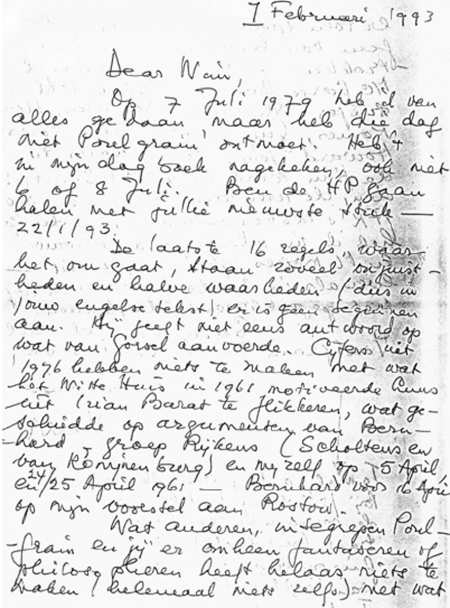 1 Februari 1993
Dear Wim,
Op 7 Juli 1979 heb ik van
alles gedaan maar heb die dag
niet Poulgrain ontmoet. Heb 't
in mijn dagboek nagekeken, ook niet
6 of 8 Juli. Ben de HP gaan
halen met jullie nieuwste stuk —
22/1/93.
De laatste 16 regels, waar
het om gaat, staan zoveel onjuist-
heden en halve waarheden (dus in
jouw engelse tekst) er is geen beginnen
aan. Hij geeft niet eens antwoord op
wat van Gorsel aanvoerde. Cijfers uit
1976 hebben niets te maken met wat
het Witte Huis in 1961 motiveerde Luns
uit Irian Barat te flikkeren, wat ge-
schiedde op argumenten van Bern-
hard - groep Rijkens (Scholtens en
van Konijnenburg) en mij zelf op 5 April
en 24/25 April 1961 — Bernhard voor 16 April
op mijn voorstel aan Rostow.
Wat anderen, inbegrepen Poul-
grain en jij er omheen fantaseren of
philosopheren heeft helaas niets te
maken (helemaal niets zelfs) met wat